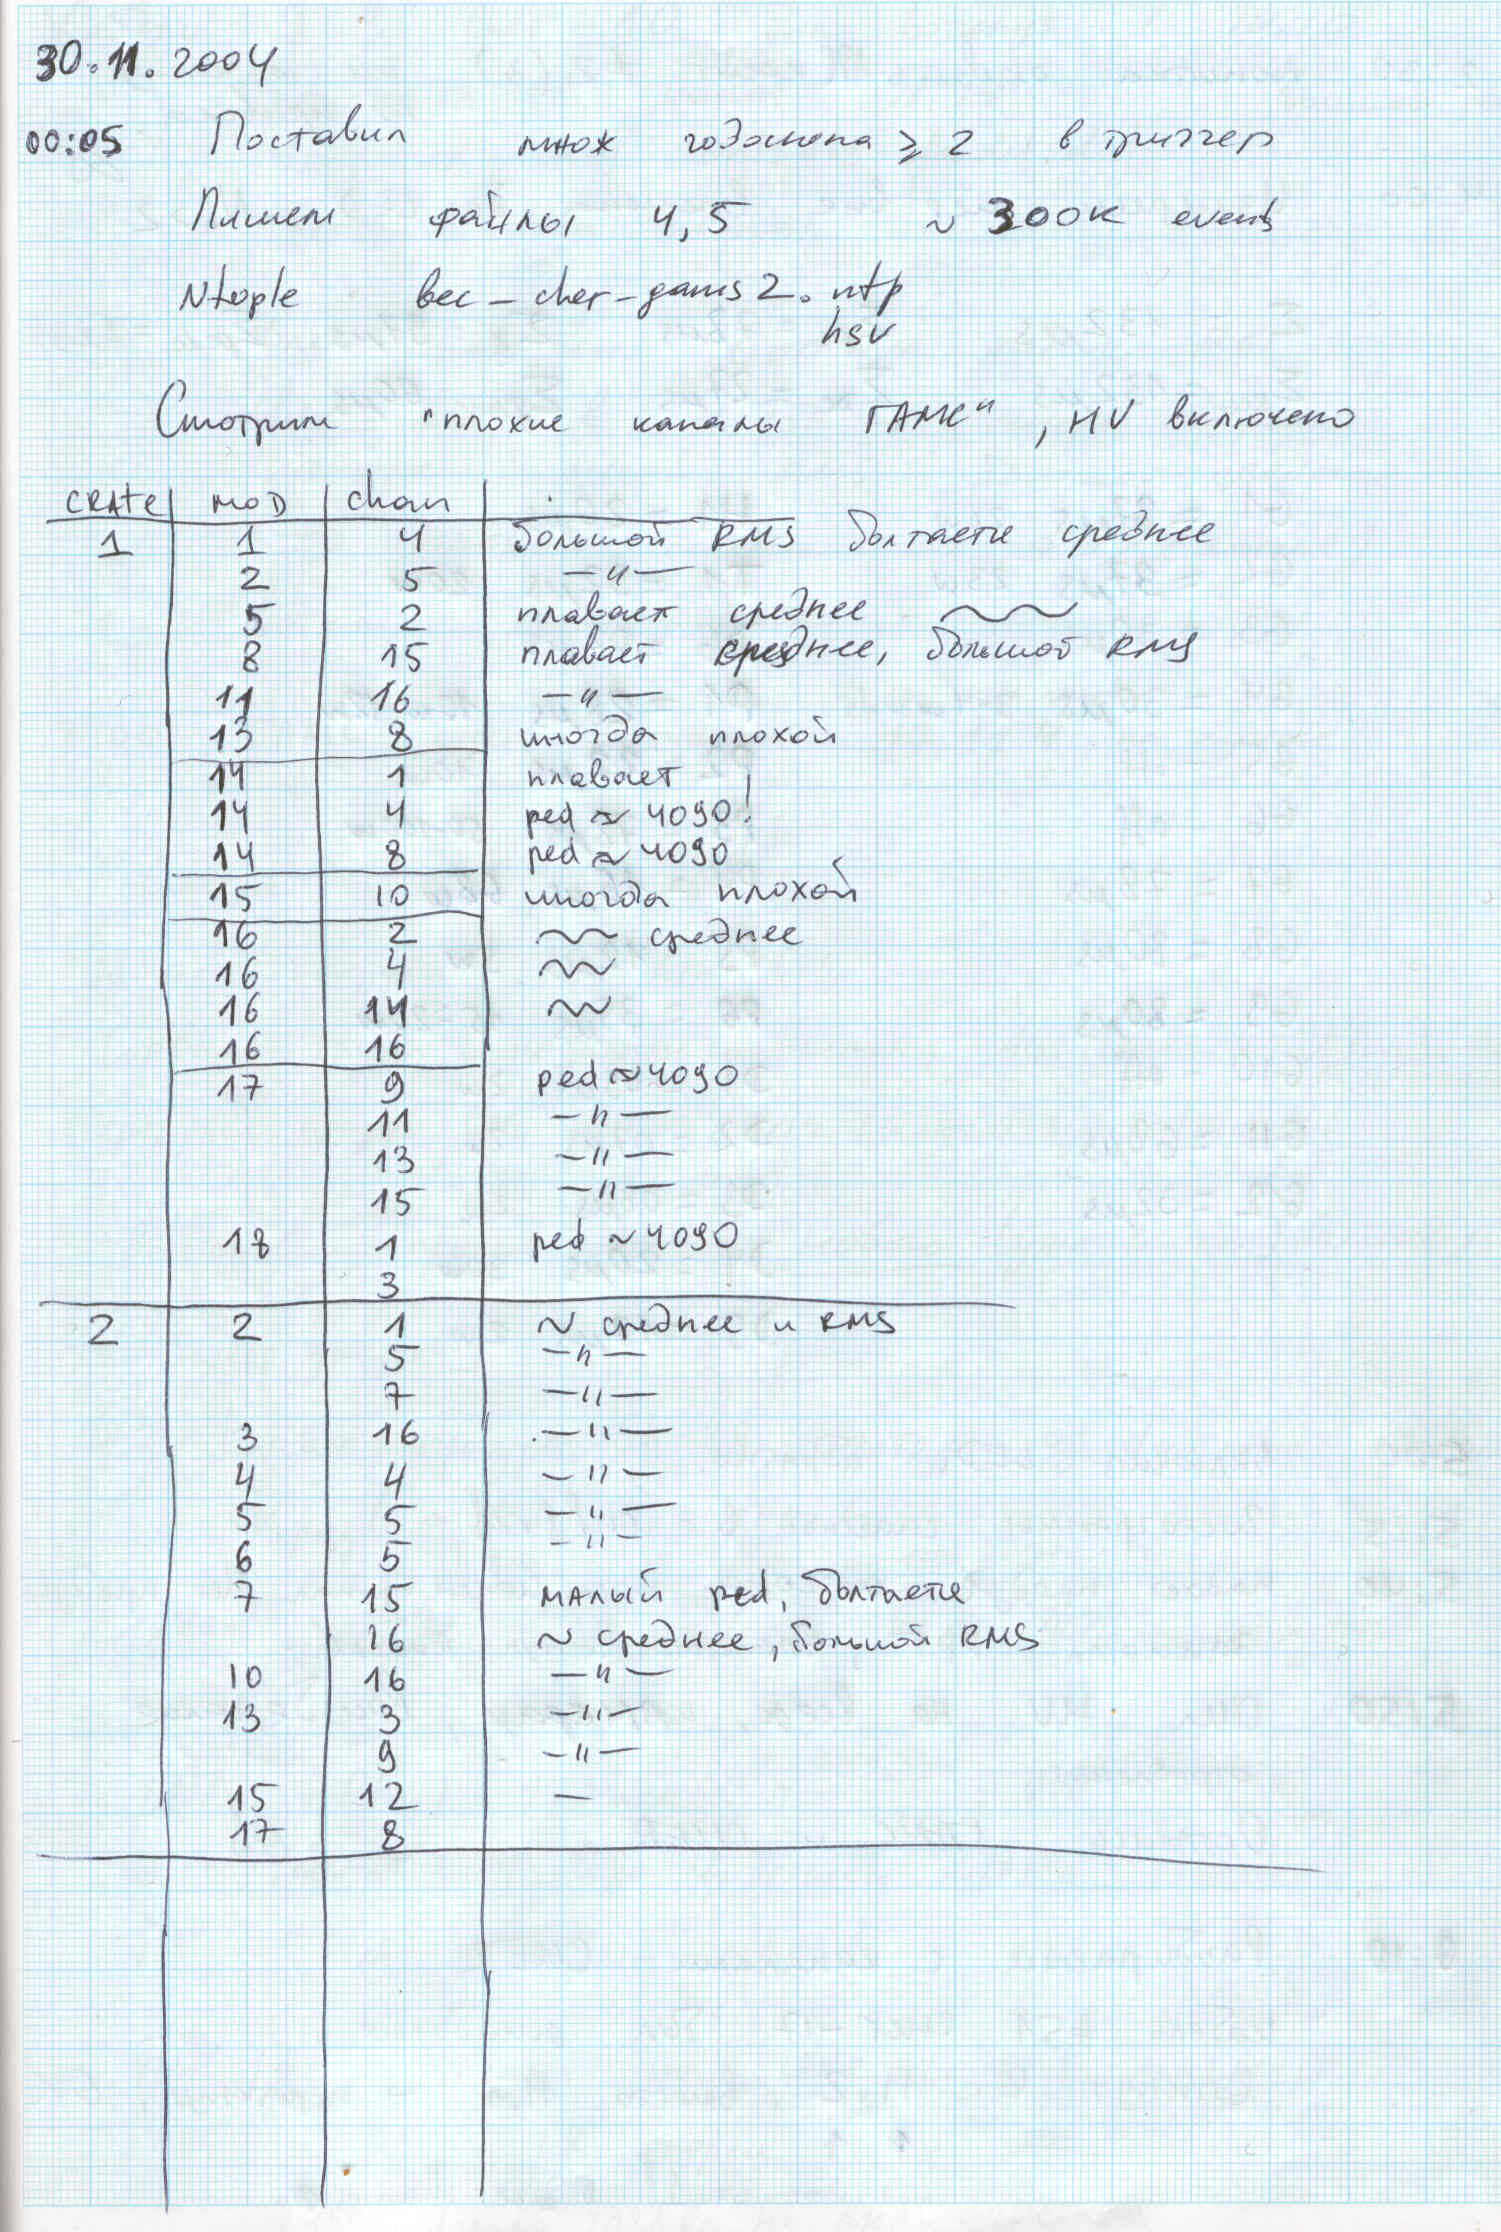 30.11.2004
00:05 Поставил множ годоскопа ≥ 2 в триггер
Пишем файлы 4,5 ~ 300K events
Ntuple bec-cher-gams2.ntp
hsv
Смотрим "плохие каналы ГАМС", HV включено
CRATE MOD chan
1 1 4 большой RMS болтается среднее
2 5 —"—
5 2 плавает среднее ~~
8 15 плавает среднее, большой RMS
11 16 —"—
13 8 иногда плохой
14 1 плавает
14 4 ped ≈ 4090!
14 8 ped ≈ 4090
15 10 иногда плохой
16 2 ~~ среднее
16 4 ~~
16 14 ~~
16 16
17 9 ped ≈ 4090
11 —"—
13 —"—
15 —"—
18 1 ped ~ 4090
3
2 2 1 ~ среднее и RMS
5 —"—
7 —"—
3 16 —"—
4 4 —"—
5 5 —"—
6 5 —"—
7 15 малый ped, болтается
16 ~ среднее, большой RMS
10 16 —"—
13 3 —"—
9 —"—
15 12 —
17 8